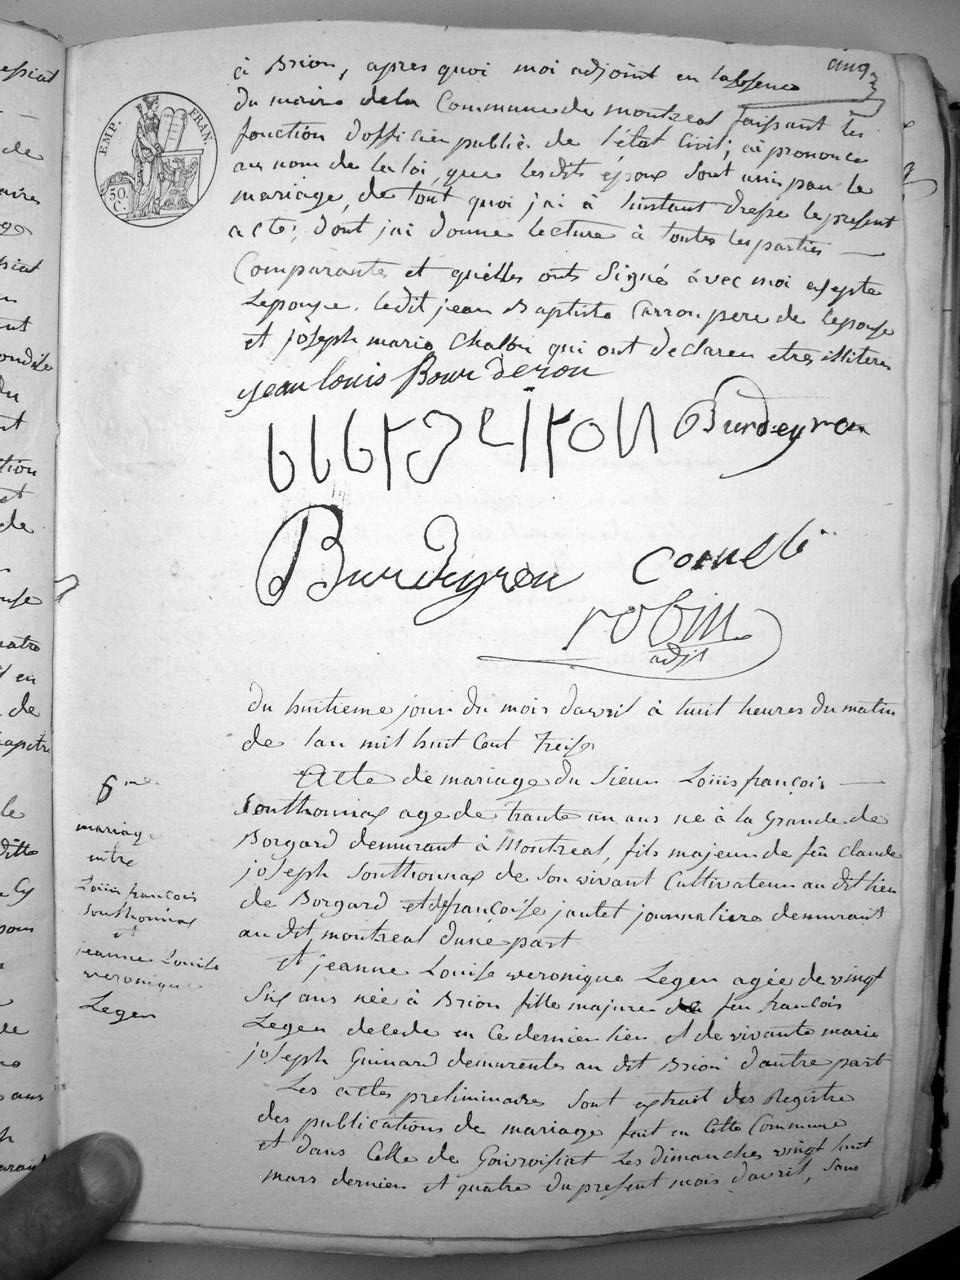 cinq
à Brion, apres quoi moi adjoint en labsence
du maire de la Commune de montreal faisant les
fonction dofficier public de l'état Civil; ai prononcé
au nom de la loi, que lesdits époux sont unis par le
mariage, de tout quoi j'ai à linstant dressé le present
acte; dont j'ai donné lecture à toutes les parties
Comparantes et quelles onts Signé avec moi excepte
Lepouse. ledit jean Baptiste Carron pere de lepouse
et joseph marie Chalbu qui ont declaren etres illiteres
jean louis Bourderon
Burdeyron
Burdeyron
robin
adjt
EMP. FRAN.
50 C.
du huitieme jour du mois davril à huit heures du matin
de lan mil huit Cent treise
6me
Acte de mariage du Sieur Loüis françois
Southonnax age de trante un ans né à la Grande de
Borgard demurant à Montreal, fils majeur de feu Claude
joseph Southonnax de son vivant Cultivateur au dit lieu
de Borgard et de françoise jautet journaliere demurant
au dit montreal dune part
et jeanne Louise veronique Leger agée de vingt
Six ans née à Brion fille majure de feu francois
Leger décédé en Ce dernier lieu et de vivante marie
joseph Guinard demurentes au dit Brion dautre part
Les actes preliminaires sont extrait des Registre
des publications de mariage fait en Cette Commune
et dans Celle de les dimanches vingt huit
mars dernier et quatre du present mois davril, sans
mariage
entre
Loüis francois
Southonnax
et
jeanne Louise
veronique
Leger